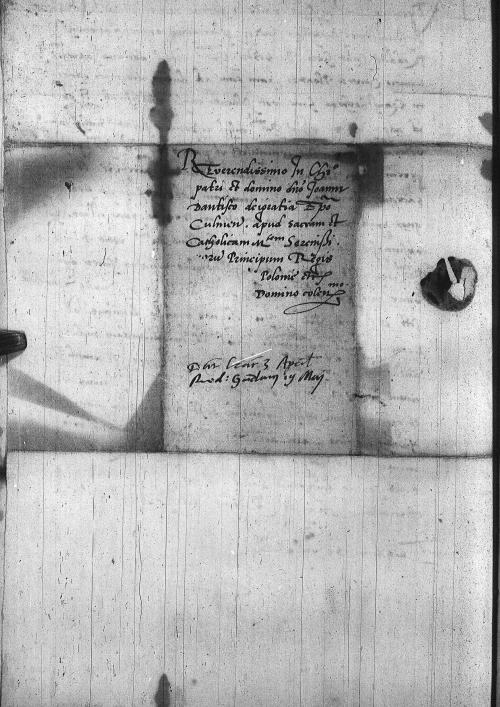 Reverendissimo In Chro
patri et domino dno Joanni
Dantisco dei gratia Epo
Culmen. apud sacram et
Catholicam M.tem Serenissi
Principum Regis
Polonie etc
Domino colen.mo
Dat 3 April
Red: Maij